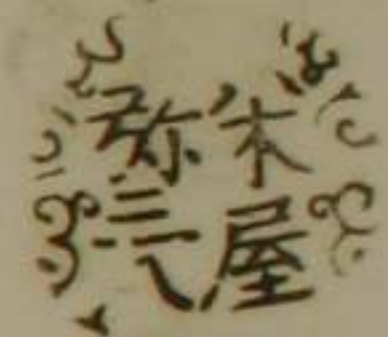 米屋
弥三八